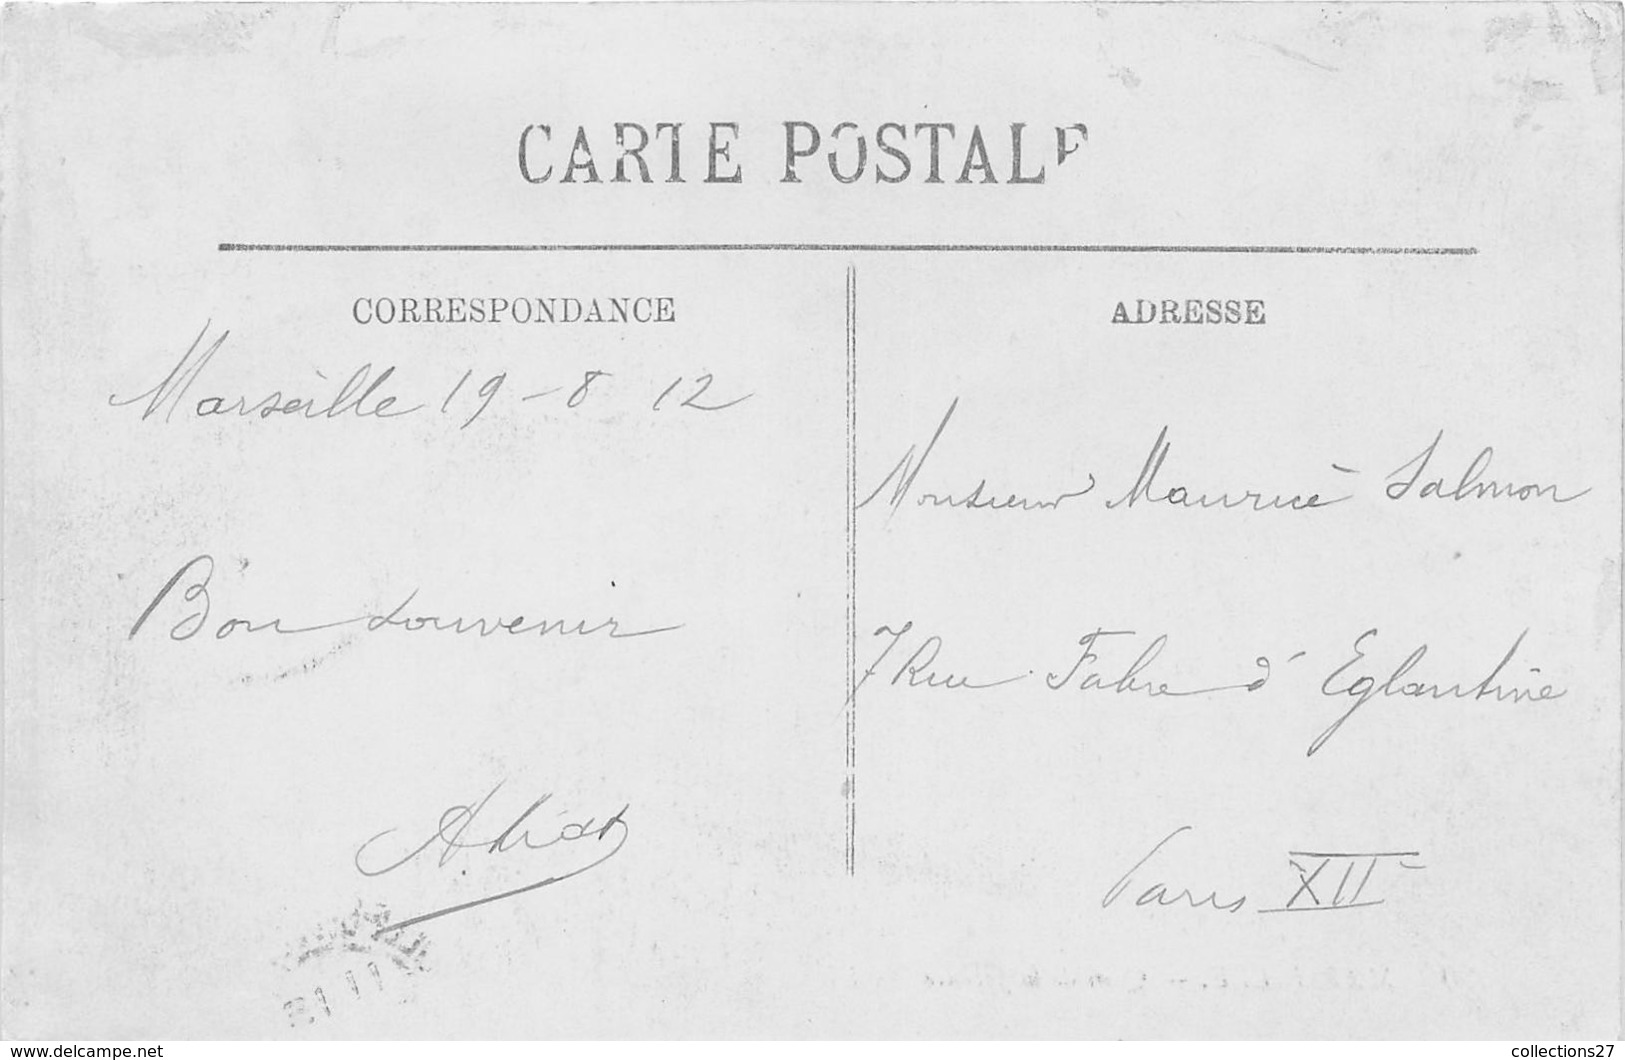 CARTE POSTALE
CORRESPONDANCE
Marseille 19-8 12
Bon souvenir
ADRESSE
Monsieur Maurice Salmon
7 Rue Fabre d'Eglantine
Paris XII
www.delcampe.net
collections27